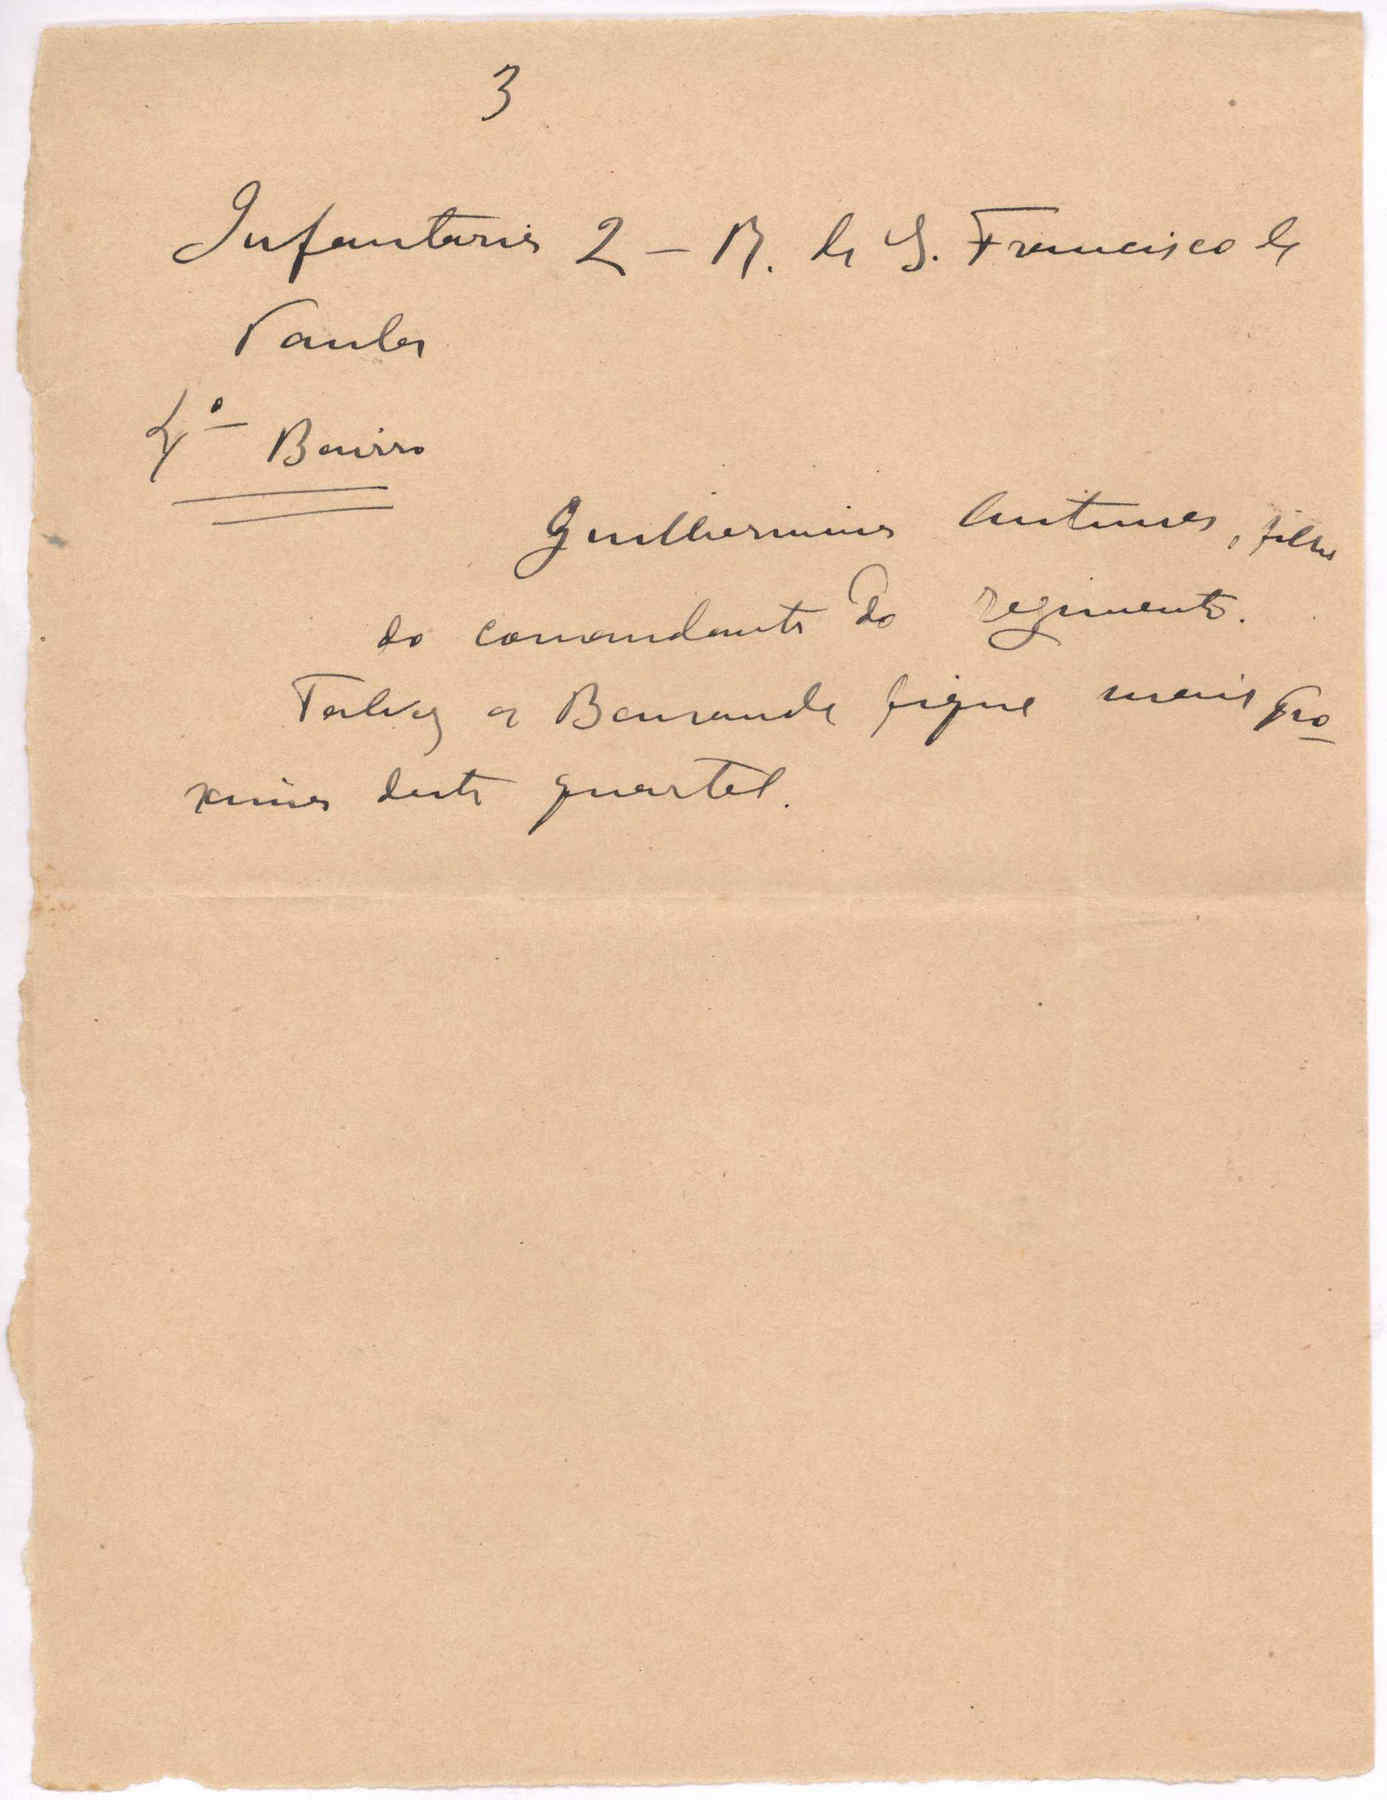 3
Infantaria 2 – R. de S. Francisco de
Paula
4º Bairro
Guilhermina Antunes, filha
do comandante do regimento.
Talvez a Bemvinda fique mais pro-
xima deste quartel.